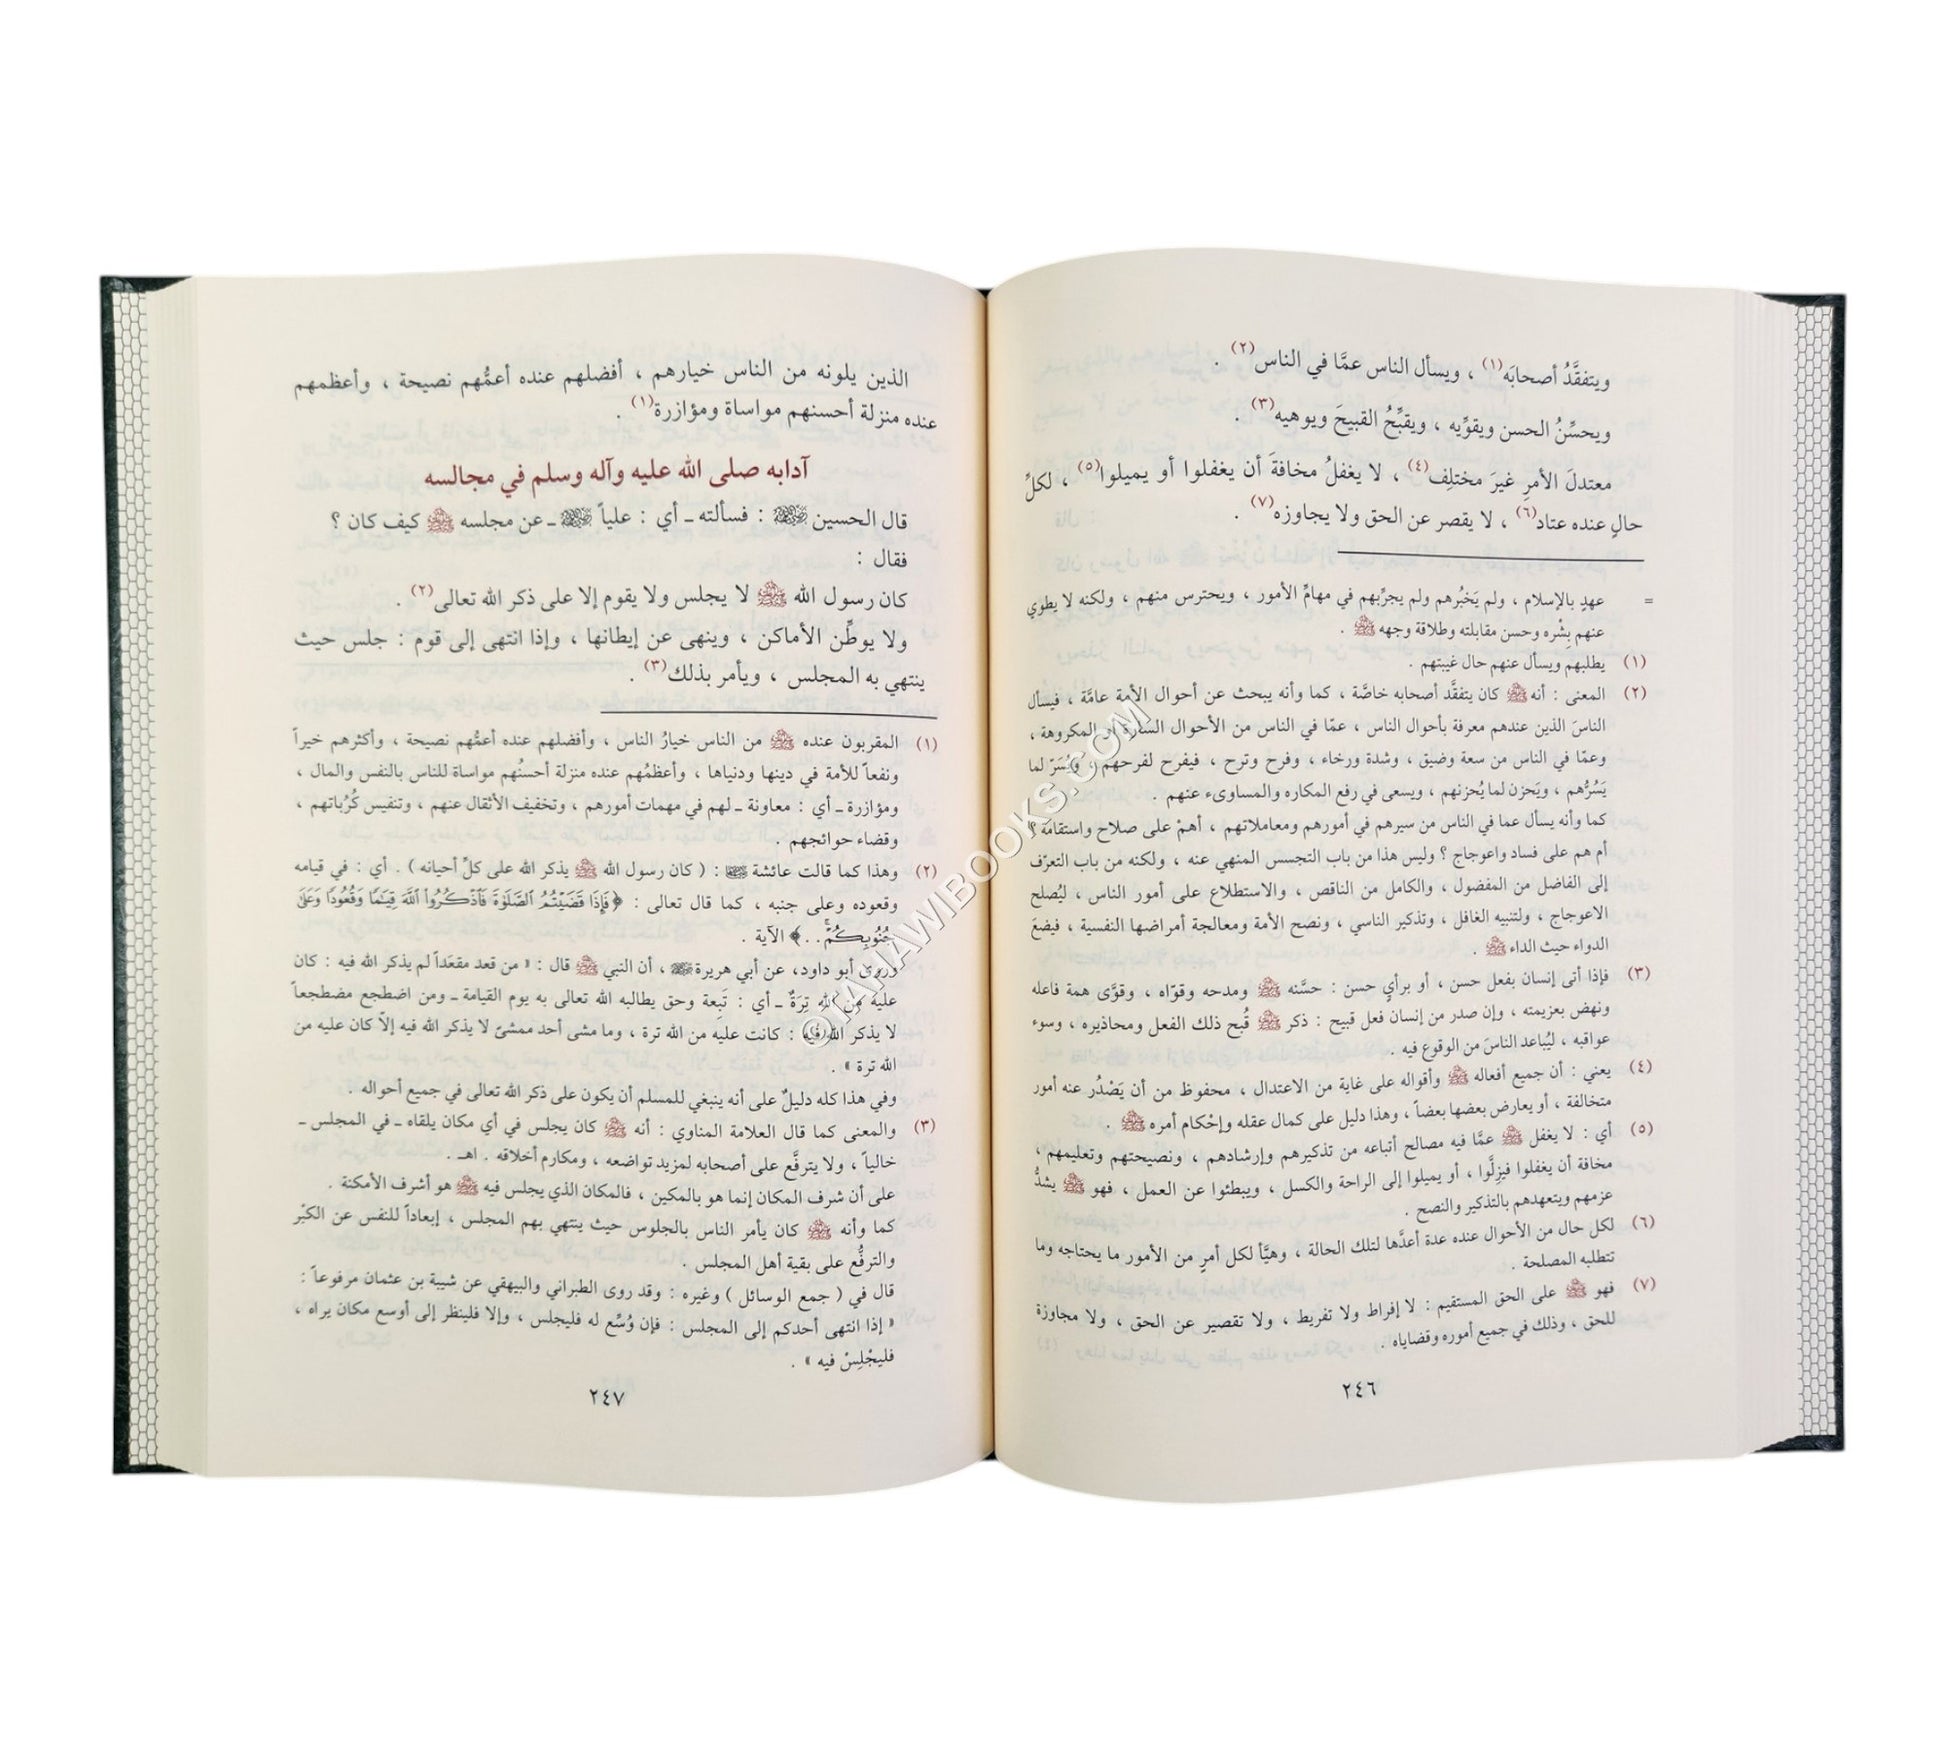 ويتفقَّدُ أصحابَه(١) ، ويسأل الناس عمَّا في الناس(٢) .
ويحسِّنُ الحسن ويقوِّيه ، ويقبِّحُ القبيحَ ويوهيه(٣) .
معتدلَ الأمرِ غيرَ مختلِف(٤) ، لا يغفلُ مخافةَ أن يغفلوا أو يميلوا(٥) ، لكلِّ
حالٍ عنده عتاد(٦) ، لا يقصر عن الحق ولا يجاوزه(٧) .
= عهدٍ بالإسلام ، ولم يَخبُرهم ولم يجرِّبهم في مهامِّ الأمور ، ويحترس منهم ، ولكنه لا يطوي
عنهم بِشْره وحسن مقابلته وطلاقة وجهه ﷺ .
(١) يطلبهم ويسأل عنهم حال غيبتهم .
(٢) المعنى : أنه ﷺ كان يتفقَّد أصحابه خاصَّة ، كما وأنه يبحث عن أحوال الأمة عامَّة ، فيسأل
الناسَ الذين عندهم معرفة بأحوال الناس ، عمّا في الناس من الأحوال السارة أو المكروهة ،
وعمّا في الناس من سعة وضيق ، وشدة ورخاء ، وفرح وترح ، فيفرح لفرحهم ، ويُسَرّ لما
يَسُرُّهم ، ويَحزن لما يُحزنهم ، ويسعى في رفع المكاره والمساوىء عنهم .
كما وأنه يسأل عما في الناس من سيرهم في أمورهم ومعاملاتهم ، أهمْ على صلاح واستقامة ؟
أم هم على فساد واعوجاج ؟ وليس هذا من باب التجسس المنهي عنه ، ولكنه من باب التعرّف
إلى الفاضل من المفضول ، والكامل من الناقص ، والاستطلاع على أمور الناس ، ليُصلح
الاعوجاج ، ولتنبيه الغافل ، وتذكير الناسي ، ونصح الأمة ومعالجة أمراضها النفسية ، فيضعَ
الدواء حيث الداء ﷺ .
(٣) فإذا أتى إنسان بفعل حسن ، أو برأيٍ حسن : حسَّنه ﷺ ومدحه وقوّاه ، وقوَّى همة فاعله
ونهض بعزيمته ، وإن صدر من إنسان فعل قبيح : ذكر ﷺ قُبح ذلك الفعل ومحاذيره ، وسوء
عواقبه ، ليُباعد الناسَ من الوقوع فيه .
(٤) يعني : أن جميع أفعاله ﷺ وأقواله على غاية من الاعتدال ، محفوظ من أن يَصْدُر عنه أمور
متخالفة ، أو يعارض بعضها بعضاً ، وهذا دليل على كمال عقله وإحْكام أمره ﷺ .
(٥) أي : لا يغفل ﷺ عمَّا فيه مصالح أتباعه من تذكيرهم وإرشادهم ، ونصيحتهم وتعليمهم ،
مخافة أن يغفلوا فيزِلَّوا ، أو يميلوا إلى الراحة والكسل ، ويبطئوا عن العمل ، فهو ﷺ يشدُّ
عزمهم ويتعهدهم بالتذكير والنصح .
(٦) لكل حال من الأحوال عنده عدة أعدَّها لتلك الحالة ، وهيَّأ لكل أمرٍ من الأمور ما يحتاجه وما
تتطلبه المصلحة .
(٧) فهو ﷺ على الحق المستقيم : لا إفراط ولا تفريط ، ولا تقصير عن الحق ، ولا مجاوزة
للحق ، وذلك في جميع أموره وقضاياه .
٢٤٦
الذين يلونه من الناس خيارهم ، أفضلهم عنده أعمُّهم نصيحة ، وأعظمهم
عنده منزلة أحسنهم مواساة ومؤازرة(١) .
آدابه صلى الله عليه وآله وسلم في مجالسه
قال الحسين رضي الله عنه : فسألته ـ أي : علياً رضي الله عنه ـ عن مجلسه ﷺ كيف كان ؟
فقال :
كان رسول الله ﷺ لا يجلس ولا يقوم إلا على ذكر الله تعالى(٢) .
ولا يوطِّن الأماكن ، وينهى عن إيطانها ، وإذا انتهى إلى قوم : جلس حيث
ينتهي به المجلس ، ويأمر بذلك(٣) .
(١) المقربون عنده ﷺ من الناس خيارُ الناس ، وأفضلهم عنده أعمُّهم نصيحة ، وأكثرهم خيراً
ونفعاً للأمة في دينها ودنياها ، وأعظمُهم عنده منزلة أحسنُهم مواساة للناس بالنفس والمال ،
ومؤازرة ـ أي : معاونة ـ لهم في مهمات أمورهم ، وتخفيف الأثقال عنهم ، وتنفيس كُرُباتهم ،
وقضاء حوائجهم .
(٢) وهذا كما قالت عائشة رضي الله عنها : ( كان رسول الله ﷺ يذكر الله على كلِّ أحيانه ) . أي : في قيامه
وقعوده وعلى جنبه ، كما قال تعالى : ﴿ فَإِذَا قَضَيْتُمُ ٱلصَّلَوٰةَ فَٱذْكُرُوا۟ ٱللَّهَ قِيَٰمًا وَقُعُودًا وَعَلَىٰ
جُنُوبِكُمْ . . ﴾ الآية .
وروى أبو داود، عن أبي هريرة رضي الله عنه ، أن النبي ﷺ قال : « من قعد مقعَداً لم يذكر الله فيه : كان
عليه من الله تِرَةٌ ـ أي : تَبِعة وحق يطالبه الله تعالى به يوم القيامة ـ ومن اضطجع مضطجعاً
لا يذكر الله فيه : كانت عليه من الله ترة ، وما مشى أحد ممشىً لا يذكر الله فيه إلاّ كان عليه من
الله ترة » .
وفي هذا كله دليلٌ على أنه ينبغي للمسلم أن يكون على ذكر الله تعالى في جميع أحواله .
(٣) والمعنى كما قال العلامة المناوي : أنه ﷺ كان يجلس في أي مكان يلقاه ـ في المجلس ـ
خالياً ، ولا يترفَّع على أصحابه لمزيد تواضعه ، ومكارم أخلاقه . اهـ .
على أن شرف المكان إنما هو بالمكين ، فالمكان الذي يجلس فيه ﷺ هو أشرف الأمكنة .
كما وأنه ﷺ كان يأمر الناس بالجلوس حيث ينتهي بهم المجلس ، إبعاداً للنفس عن الكبْر
والترفُّع على بقية أهل المجلس .
قال في ( جمع الوسائل ) وغيره : وقد روى الطبراني والبيهقي عن شيبة بن عثمان مرفوعاً :
« إذا انتهى أحدكم إلى المجلس : فإن وُسِّع له فليجلس ، وإلا فلينظر إلى أوسع مكان يراه ،
فليجْلِسْ فيه » .
٢٤٧
©TAHAWIBOOKS.COM